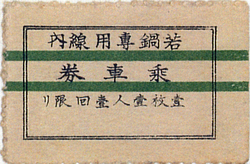 若鍋専用線內
乘車券
壹枚壹人壹回限リ